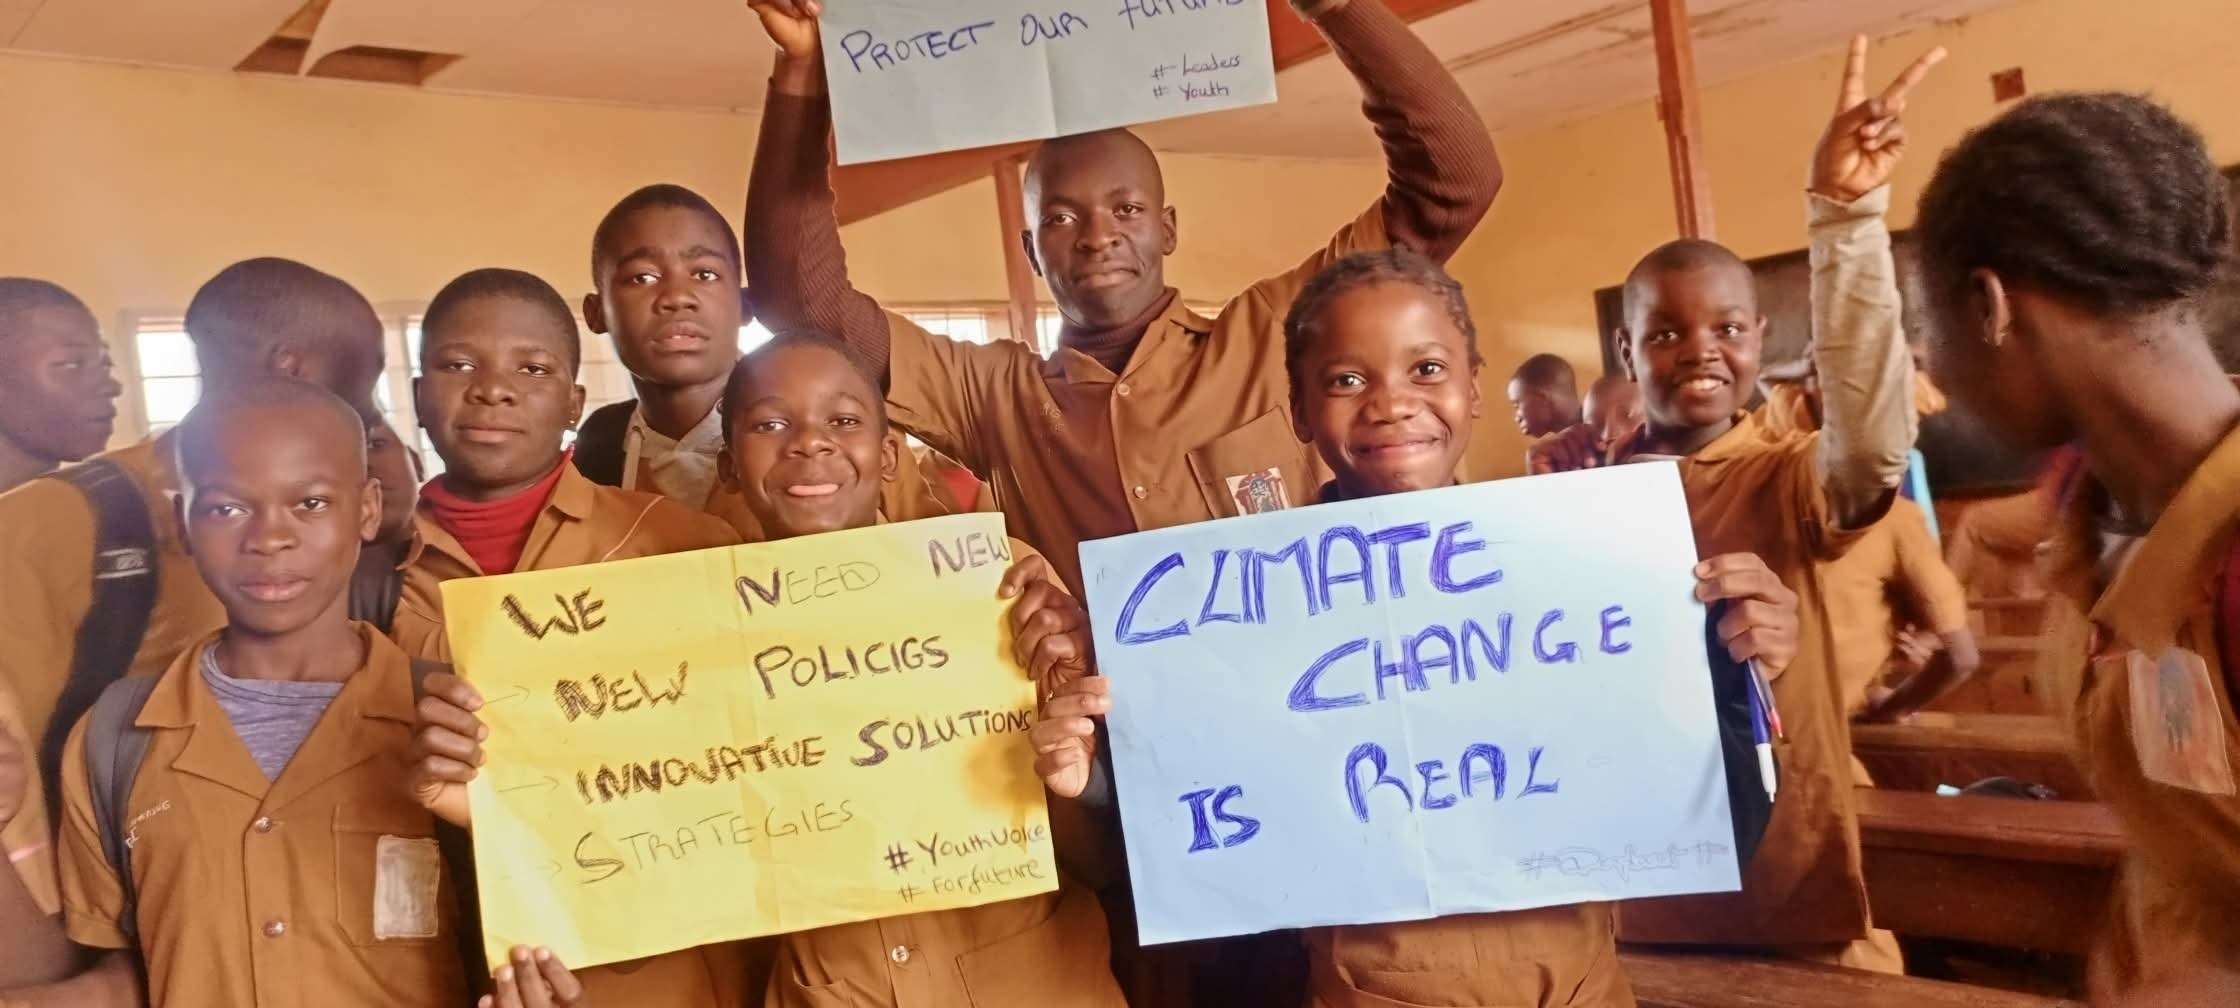 PROTECT OUR FUTURE
# Leaders
# Youth
WE NEED NEW
→ NEW POLICIGS
→ INNOVATIVE SOLUTIONS
→ STRATEGIES
# YouthVoice
# Forfuture
CLIMATE
CHANGE
IS REAL